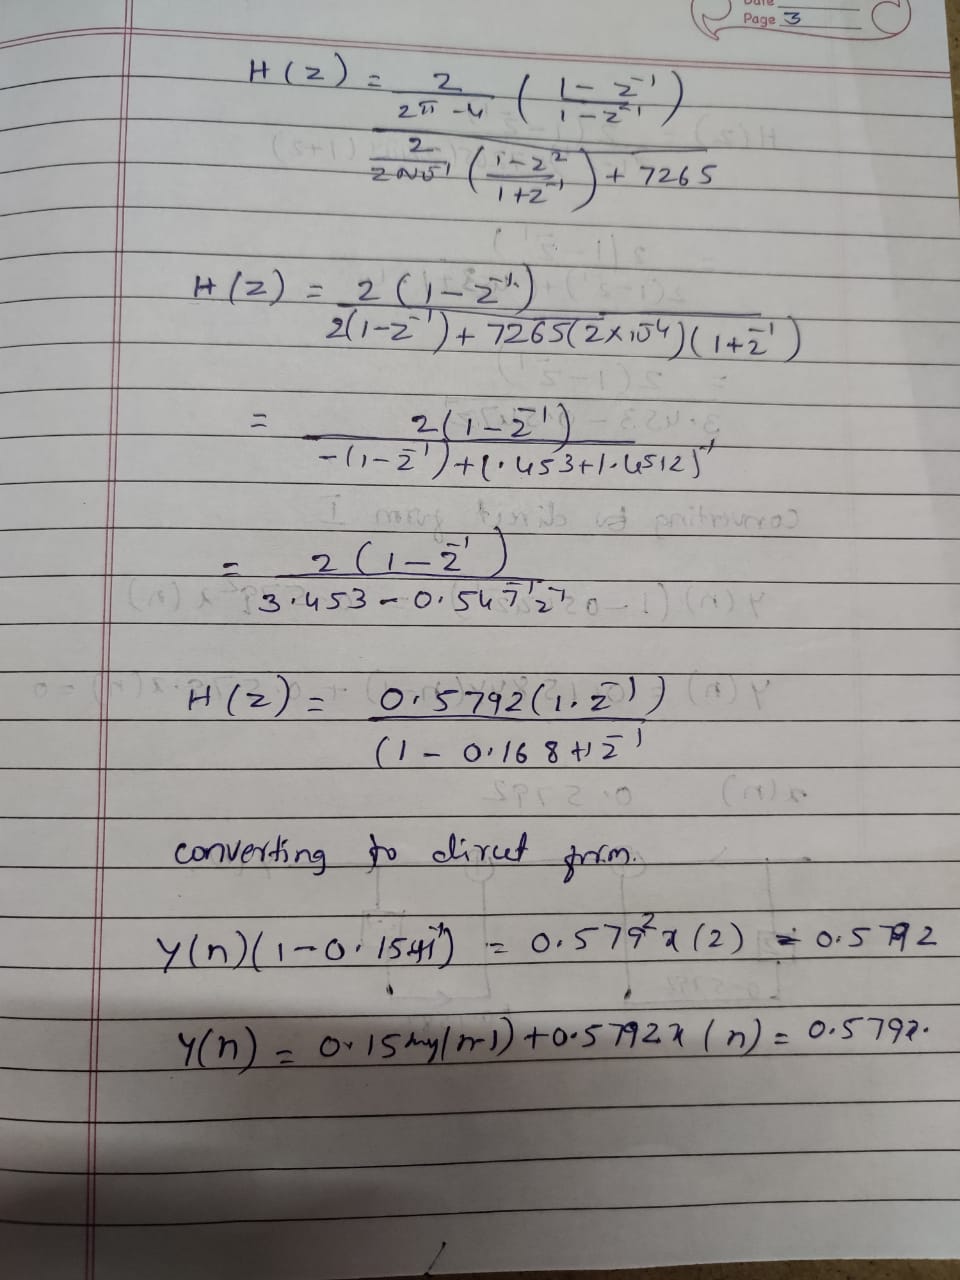 Date
Page 3
H(z) = 2/(2π-4) ( (1-z⁻¹)/(1-z⁻¹) )
2/ ( (1-z²)/(1+z⁻¹) ) + 7265
H(z) = 2(1-z⁻¹)
2(1-z⁻¹) + 7265(2×10⁻⁴)(1+z⁻¹)
= 2(1-z⁻¹)
-(1-z⁻¹)+(1.453+1.4512)⁻¹
= 2(1-z⁻¹)
3.453-0.547⁻¹z⁻¹
H(z) = 0.5792(1.z⁻¹)
(1-0.168+1z⁻¹
converting to direct form.
Y(n)(1-0.1541⁻¹) = 0.579²x(2) = 0.5792
Y(n) = 0.15 y(n-1)+0.5792x(n) = 0.579